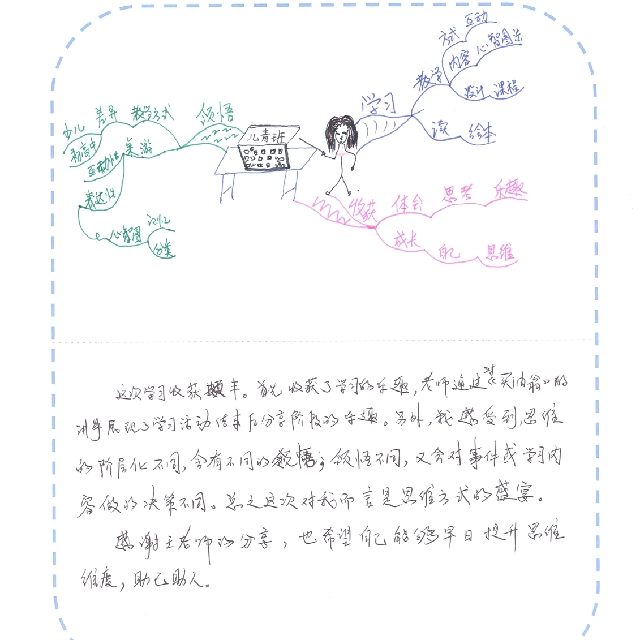 方式 互动
内容 心智图示
设计 课程
教学
学习
读 绘本
领悟
教学方式
差异
少儿
初高中
互动性
桌游
表达
心智图
记忆
分类
儿青班
收获
体会 思考 乐趣
成长 自己 思维
这次学习收获颇丰。首先收获了学习的乐趣，老师通过"卖油翁"的
讲导展现了学习活动结束后分享阶段的乐趣。另外，我感受到思维
的阶层化不同，会有不同的领悟；领悟不同，又会对事件或学习内
容做的决策不同。总之这次对我而言是思维方式的盛宴。
感谢王老师的分享，也希望自己能够早日提升思维
维度，助己助人。